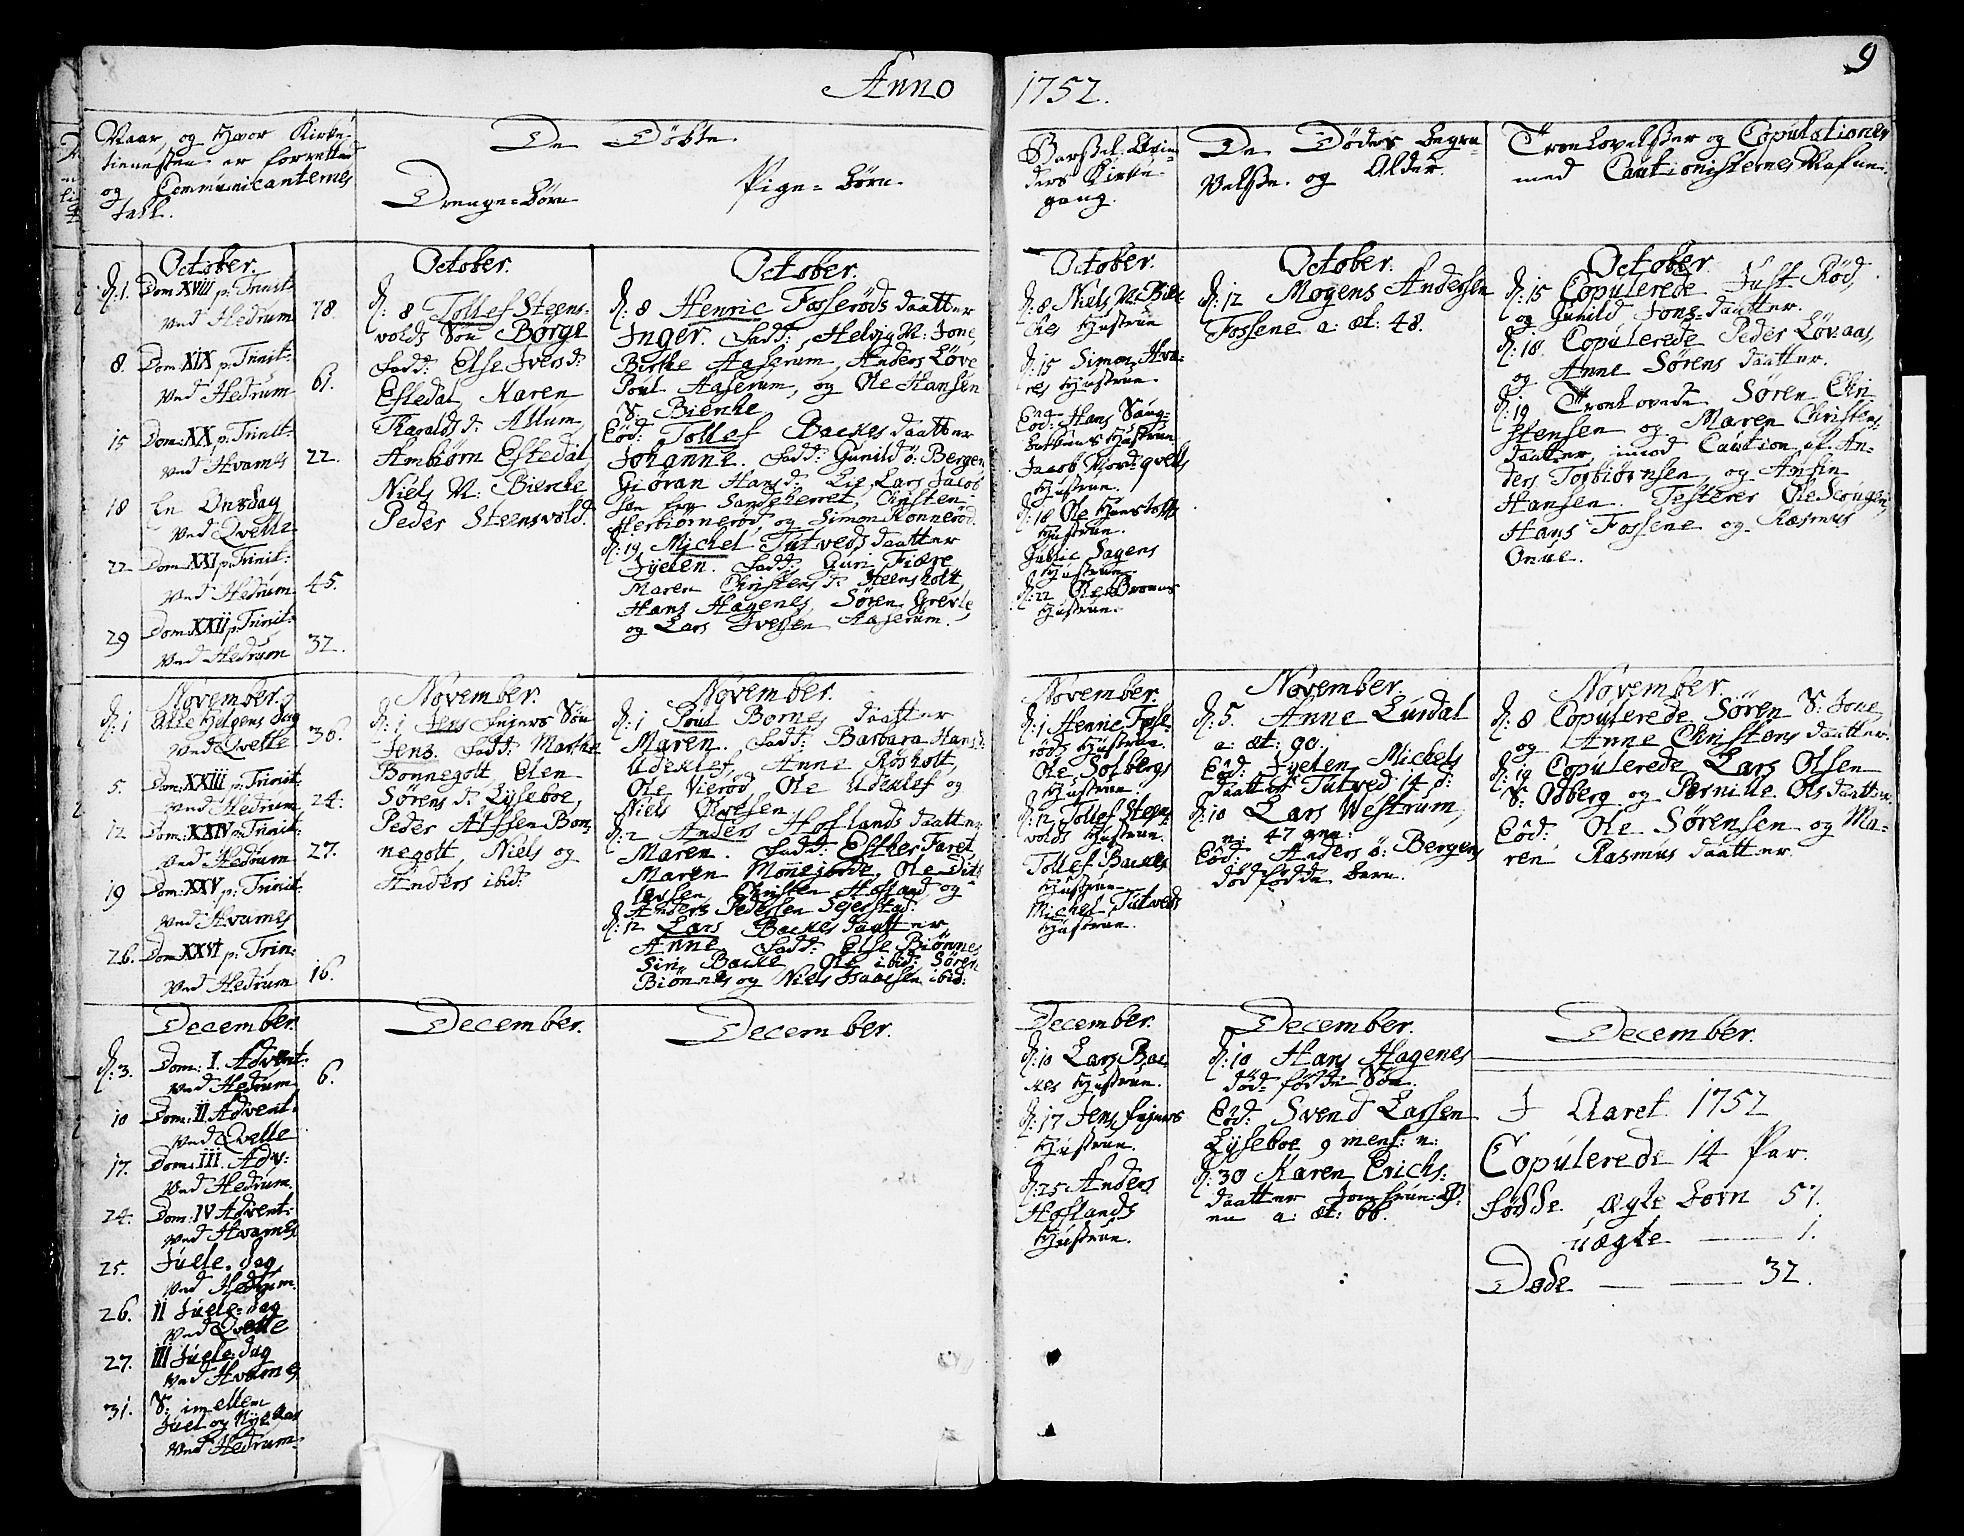 Anno 1752.
9
Naar, og Hvor Kirke-
tienesten er forrettet
og Communicanternes
Tall.
De Døbte.
Drenge-Børn
Pige-Børn.
Barsel-Qvin-
ders Kirke-
gang.
De Dødes Begra-
velse og Alder.
Troelovelser og Copulationer
med Cautionisternes Nafne.
October.
d. 1. Dom XVIII p: Trinit:
ved Hedrum 78.
8. Dom XIX p: Trinit:
ved Hedrum 61.
15 Dom: XX p: Trinit:
ved Hvarnes 22.
18 En Onsdag
ved Qvelle
22 Dom XXI p: Trinit:
ved Hedrum 45.
29 Dom: XXII p: Trinit:
ved Hedrum 32.
October.
d: 8 Tollef Steens-
volds Søn Børge
fadd: Else Iversd:
Eftedal, Karen
Haraldsd: Allum,
Ambiørn Eftedal
Niels N: Biercke
Peder Steensvold.
October.
d: 8 Henric Fosserøds daatter
Inger. fadd: Helvig N: Jone,
Birthe Aaserum, Anders Løve
Poul Aaserum, og Ole Hansen
S: Biercke
Eod: Tollef Backes daatter
Johanne. fadd: Gunild ø: Bergen
Giøran Hansd: Lie, Lars Jacob
sen fra Sandeherret, Christen
Herbiørnerød, og Simon Rønnerød.
d: 19 Michel Tutveds daatter
Iyelen. fadd: Guri Fiære
Maren Christensd: Steensholt,
Hans Hagenes, Søren Grevle,
og Lars Ivessen Aaserum.
October.
d: 8 Niels N: Bier
ckes Hustrue
d: 15 Simon Hva-
res Hustrue.
Eod: Hans Saug-
backens Hustrue
Jacob Nordqvells
Hustrue.
d: 18 Ole
Hustrue.
Gullic Sagens
Hustrue.
d: 22 Ole Broens
Hustrue.
October.
d: 12 Mogens Andersen
Fossene a: æt: 48.
October.
d: 15 Copulerede Just Rød,
og Gunild Jons-daatter.
d: 18. Copulerede Peder Løvaas,
og Anne Sørens daatter.
d: 19 Troelovede Søren Chri-
stensen og Maren Christens
daatter, imod Caution af An-
ders Torbiørnsen, og Anfin
Hansen. Testerer Ole Scougen,
Hans Fossene og Rasmus
Onue.
November.
d: 1 Alle Helgens Dag
ved Qvelle 30.
5. Dom: XXIII p: Trinit
ved Hedrum 24:
12 Dom: XXIV p: Trinit:
ved Hedrum 27.
19 Dom: XXV p: Trinit:
ved Hvarnes
26. Dom XXVI p: Trin:
ved Hedrum 16.
November.
d: 1 Jens Fejers Søn
Jens. fadd: Marthe
Bonnegolt, Elen
Sørensd: Lyseboe,
Peder Alssen Bon-
negolt, Niels og
Anders ibid:
November.
d: 1 Poul Bornes daatter
Maren. fadd: Barbara Hansd:
Udeklef, Anne Røsholt,
Ole Vierød, Ole Udeklef og
Niels Olvessen
d: 2 Anders Hoflands daatter
Maren. fadd: Esther Faret
Maren Monejorde, Ole Dit-
lefsen, Christen Hofland og
Anders Pedersen Sejerstad.
d: 12 Lars Backes daatter
Anne. fadd: Else Biønnes
Siri Backe Ole ibid: Søren
Biønnes og Niels Isacksen ibid:
November.
d: 1 Henric Fose-
røds Hustrue.
Ole Solbergs
Hustrue
d: 12 Tollef Steens
volds Hustrue.
Tollef Backes
Hustrue
Michel Tutveds
Hustrue.
November.
d: 5. Anne Lurdal
a: æt: 90.
Eod: Iyelen Michels
daatter Tutved 14 d:
d: 10 Lars Westrum,
n: 47 ann:
Eod: Anders ø: Bergens
dødfødde barn.
November.
d: 8 Copulerede Søren S: Jone,
og Anne Christens daatter.
d: 19 Copulerede Lars Olsen
S: Odberg og Pernille Ols daatter
Eod: Ole Sørensen og Ma-
ren Rasmus daatter.
December.
d: 3. Dom: I. Advent:
ved Hedrum 6.
10 Dom: II Advent:
ved Qvelle
17. Dom: III. Adv:
ved Hedrum.
24. Dom: IV Advent:
ved Hvarnes
25. Juele-Dag
ved Hedrum.
26. II Juele-Dag
ved Qvelle
27. III Juele-Dag
ved Hvarnes
31. S: imellem
Juel og Nye Aar
ved Hedrum
December.
December.
December.
d: 10 Lars Bac
kes Hustrue.
d: 17 Jens Fejers
Hustrue.
d: 25 Anders
Hoflands
Hustrue.
December.
d: 10 Hans Hagenes
død-fødde Søn.
Eod: Svend Larssen
Lyseboe 9 mens: n:
d: 30 Karen Erichs
daatter
a: æt: 66.
December.
I Aaret 1752
Copulerede 14 Par.
fødde ægte børn 57.
uægte — 1.
Døde — 32.